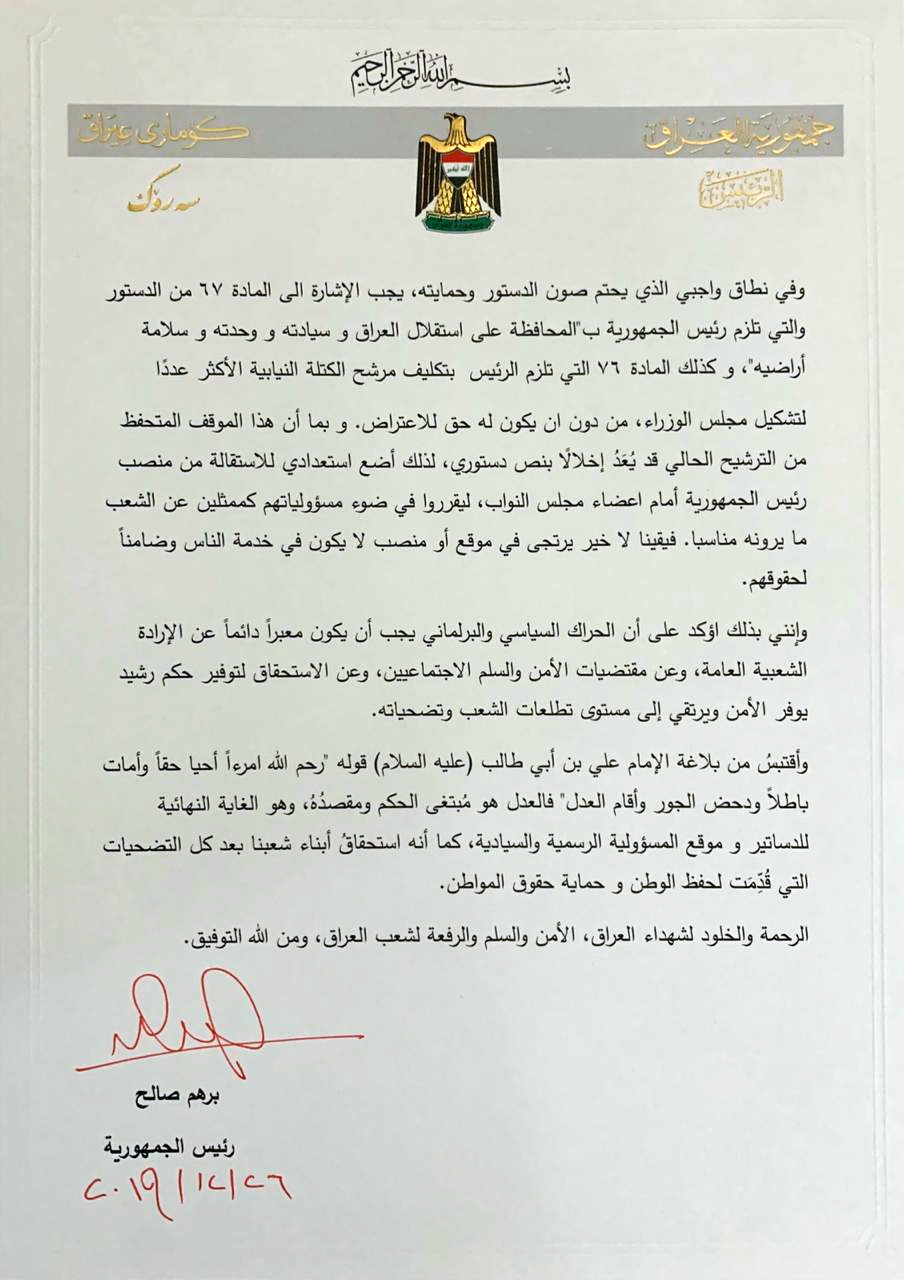 بسم الله الرحمن الرحيم
جمهورية العراق
كوماری عیراق
الرئيس
سه روك
الله أكبر
وفي نطاق واجبي الذي يحتم صون الدستور وحمايته، يجب الإشارة الى المادة ٦٧ من الدستور
والتي تلزم رئيس الجمهورية ب"المحافظة على استقلال العراق و سيادته و وحدته و سلامة
أراضيه"، و كذلك المادة ٧٦ التي تلزم الرئيس بتكليف مرشح الكتلة النيابية الأكثر عددًا
لتشكيل مجلس الوزراء، من دون ان يكون له حق للاعتراض. و بما أن هذا الموقف المتحفظ
من الترشيح الحالي قد يُعَدُ إخلالًا بنص دستوري، لذلك أضع استعدادي للاستقالة من منصب
رئيس الجمهورية أمام اعضاء مجلس النواب، ليقرروا في ضوء مسؤولياتهم كممثلين عن الشعب
ما يرونه مناسبا. فيقينا لا خير يرتجى في موقع أو منصب لا يكون في خدمة الناس وضامناً
لحقوقهم.
وإنني بذلك اؤكد على أن الحراك السياسي والبرلماني يجب أن يكون معبراً دائماً عن الإرادة
الشعبية العامة، وعن مقتضيات الأمن والسلم الاجتماعيين، وعن الاستحقاق لتوفير حكم رشيد
يوفر الأمن ويرتقي إلى مستوى تطلعات الشعب وتضحياته.
وأقتبسُ من بلاغة الإمام علي بن أبي طالب (عليه السلام) قوله "رحم الله امرءاً أحيا حقاً وأمات
باطلاً ودحض الجور وأقام العدل" فالعدل هو مُبتغى الحكم ومقصدُهُ، وهو الغاية النهائية
للدساتير و موقع المسؤولية الرسمية والسيادية، كما أنه استحقاقُ أبناء شعبنا بعد كل التضحيات
التي قُدِّمَت لحفظ الوطن و حماية حقوق المواطن.
الرحمة والخلود لشهداء العراق، الأمن والسلم والرفعة لشعب العراق، ومن الله التوفيق.
برهم صالح
رئيس الجمهورية
٢٠١٩/١٢/٢٦